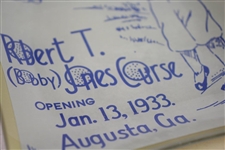 Robert T.
(Bobby) Jones Course
OPENING
Jan. 13, 1933.
Augusta, Ga.